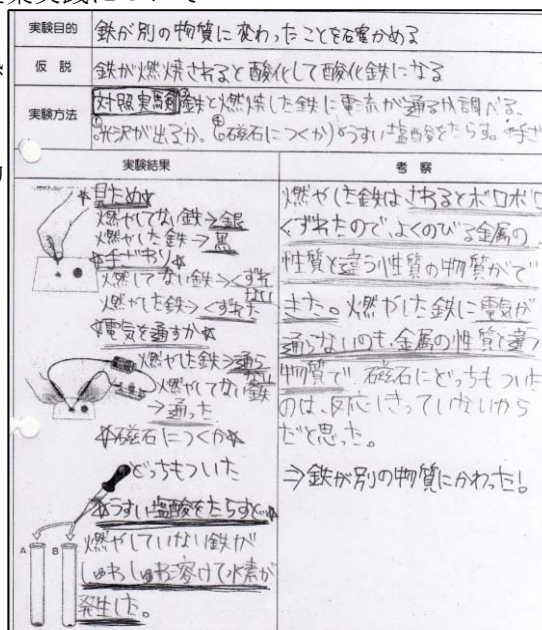 実験目的
鉄が別の物質に変わったことを確かめる
仮説
鉄が燃焼されると酸化して酸化鉄になる
実験方法
対照実験 鉄と燃焼した鉄に電流が通るか調べる、
光沢が出るか。磁石につくか うすい塩酸をたらす。手ざ
実験結果
☆見ため☆
燃やしてない鉄→銀
燃やした鉄→黒
☆手ざわり☆
燃してない鉄→くずれない
燃やした鉄→くずれた
☆電気を通すか☆
燃やした鉄→通らない
燃やしてない鉄
→通った
☆磁石につくか☆
どっちもついた
☆うすい塩酸をたらすと☆
燃やしていない鉄が
しゅわしゅわ溶けて水素が
発生した。
A
B
考察
燃やした鉄はさわるとボロボロ
くずれたので、よくのびる金属の
性質と違う性質の物質がで
きた。燃やした鉄に電気が
通らないのも、金属の性質と違う
物質で 磁石にどっちもついた
のは、反応しきっていないから
だと思った。
⇒鉄が別の物質にかわった!